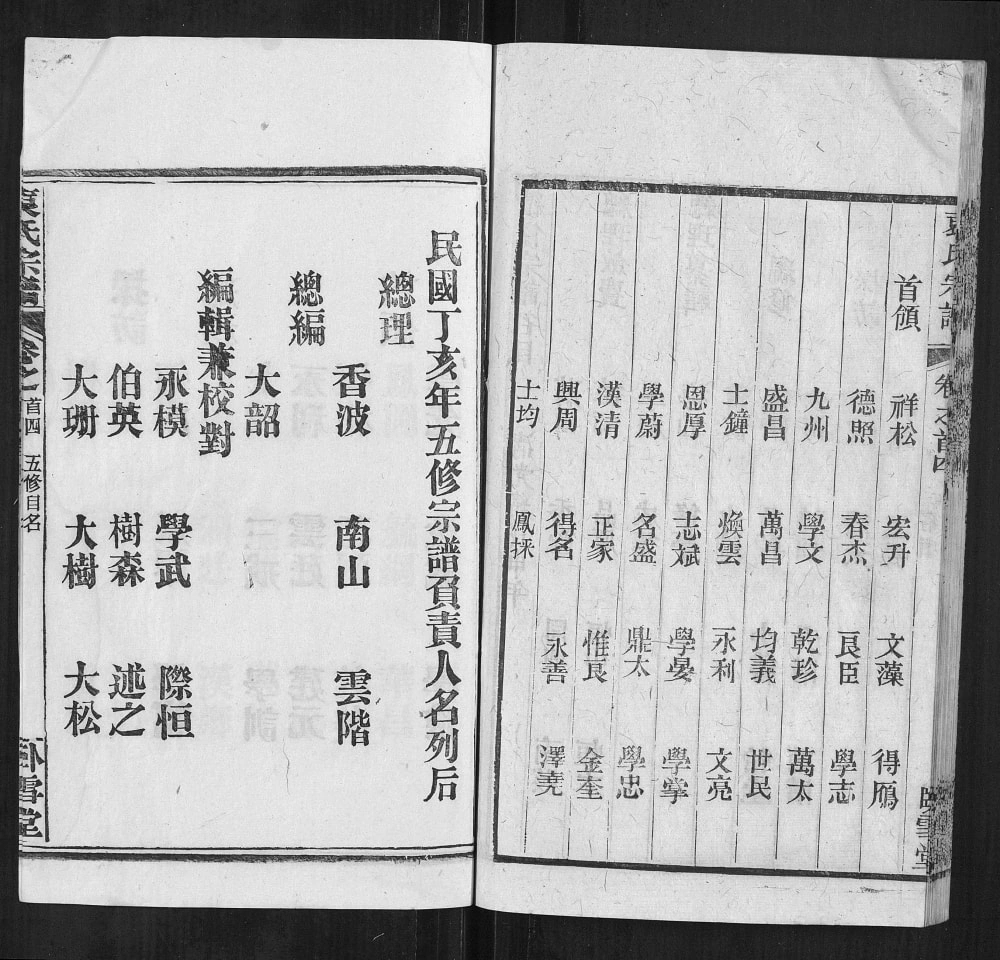 袁氏宗譜 卷之首四 臥雪堂
首領
祥松 宏升 文藻 得鴈
德照 春杰 良臣 學志
九州 學文 乾珍 萬太
盛昌 萬昌 均義 世民
士鐘 煥雲 永利 文亮
恩厚 志斌 學晏 學掌
學蔚 名盛 鼎太 學忠
漢清 正家 惟良 金奎
興周 得名 永善 澤堯
士均 鳳採
民國丁亥年五修宗譜負責人名列后
總理
香波 南山 雲階
總編
大韶
編輯兼校對
永模 學武 際恒
伯英 樹森 述之
大珊 大樹 大松
袁氏宗譜 卷之首四 五修目名 臥雪堂